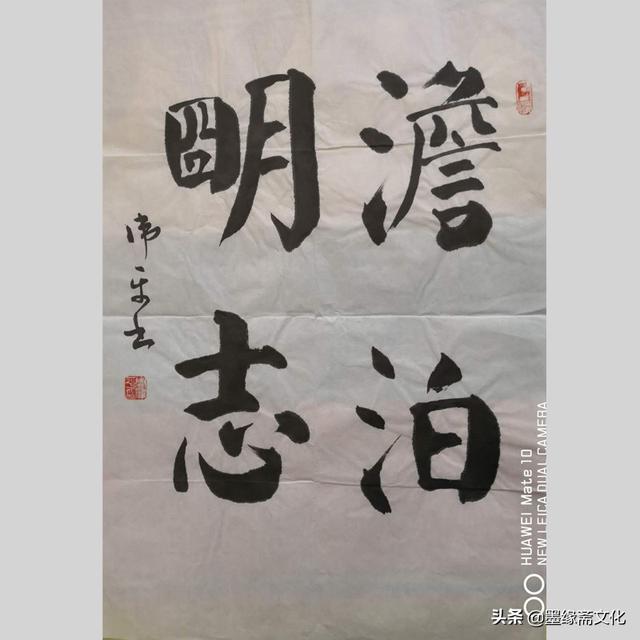 澹泊
明志
HUAWEI Mate 10
NEW LEICA DUAL CAMERA
头条 @墨缘斋文化